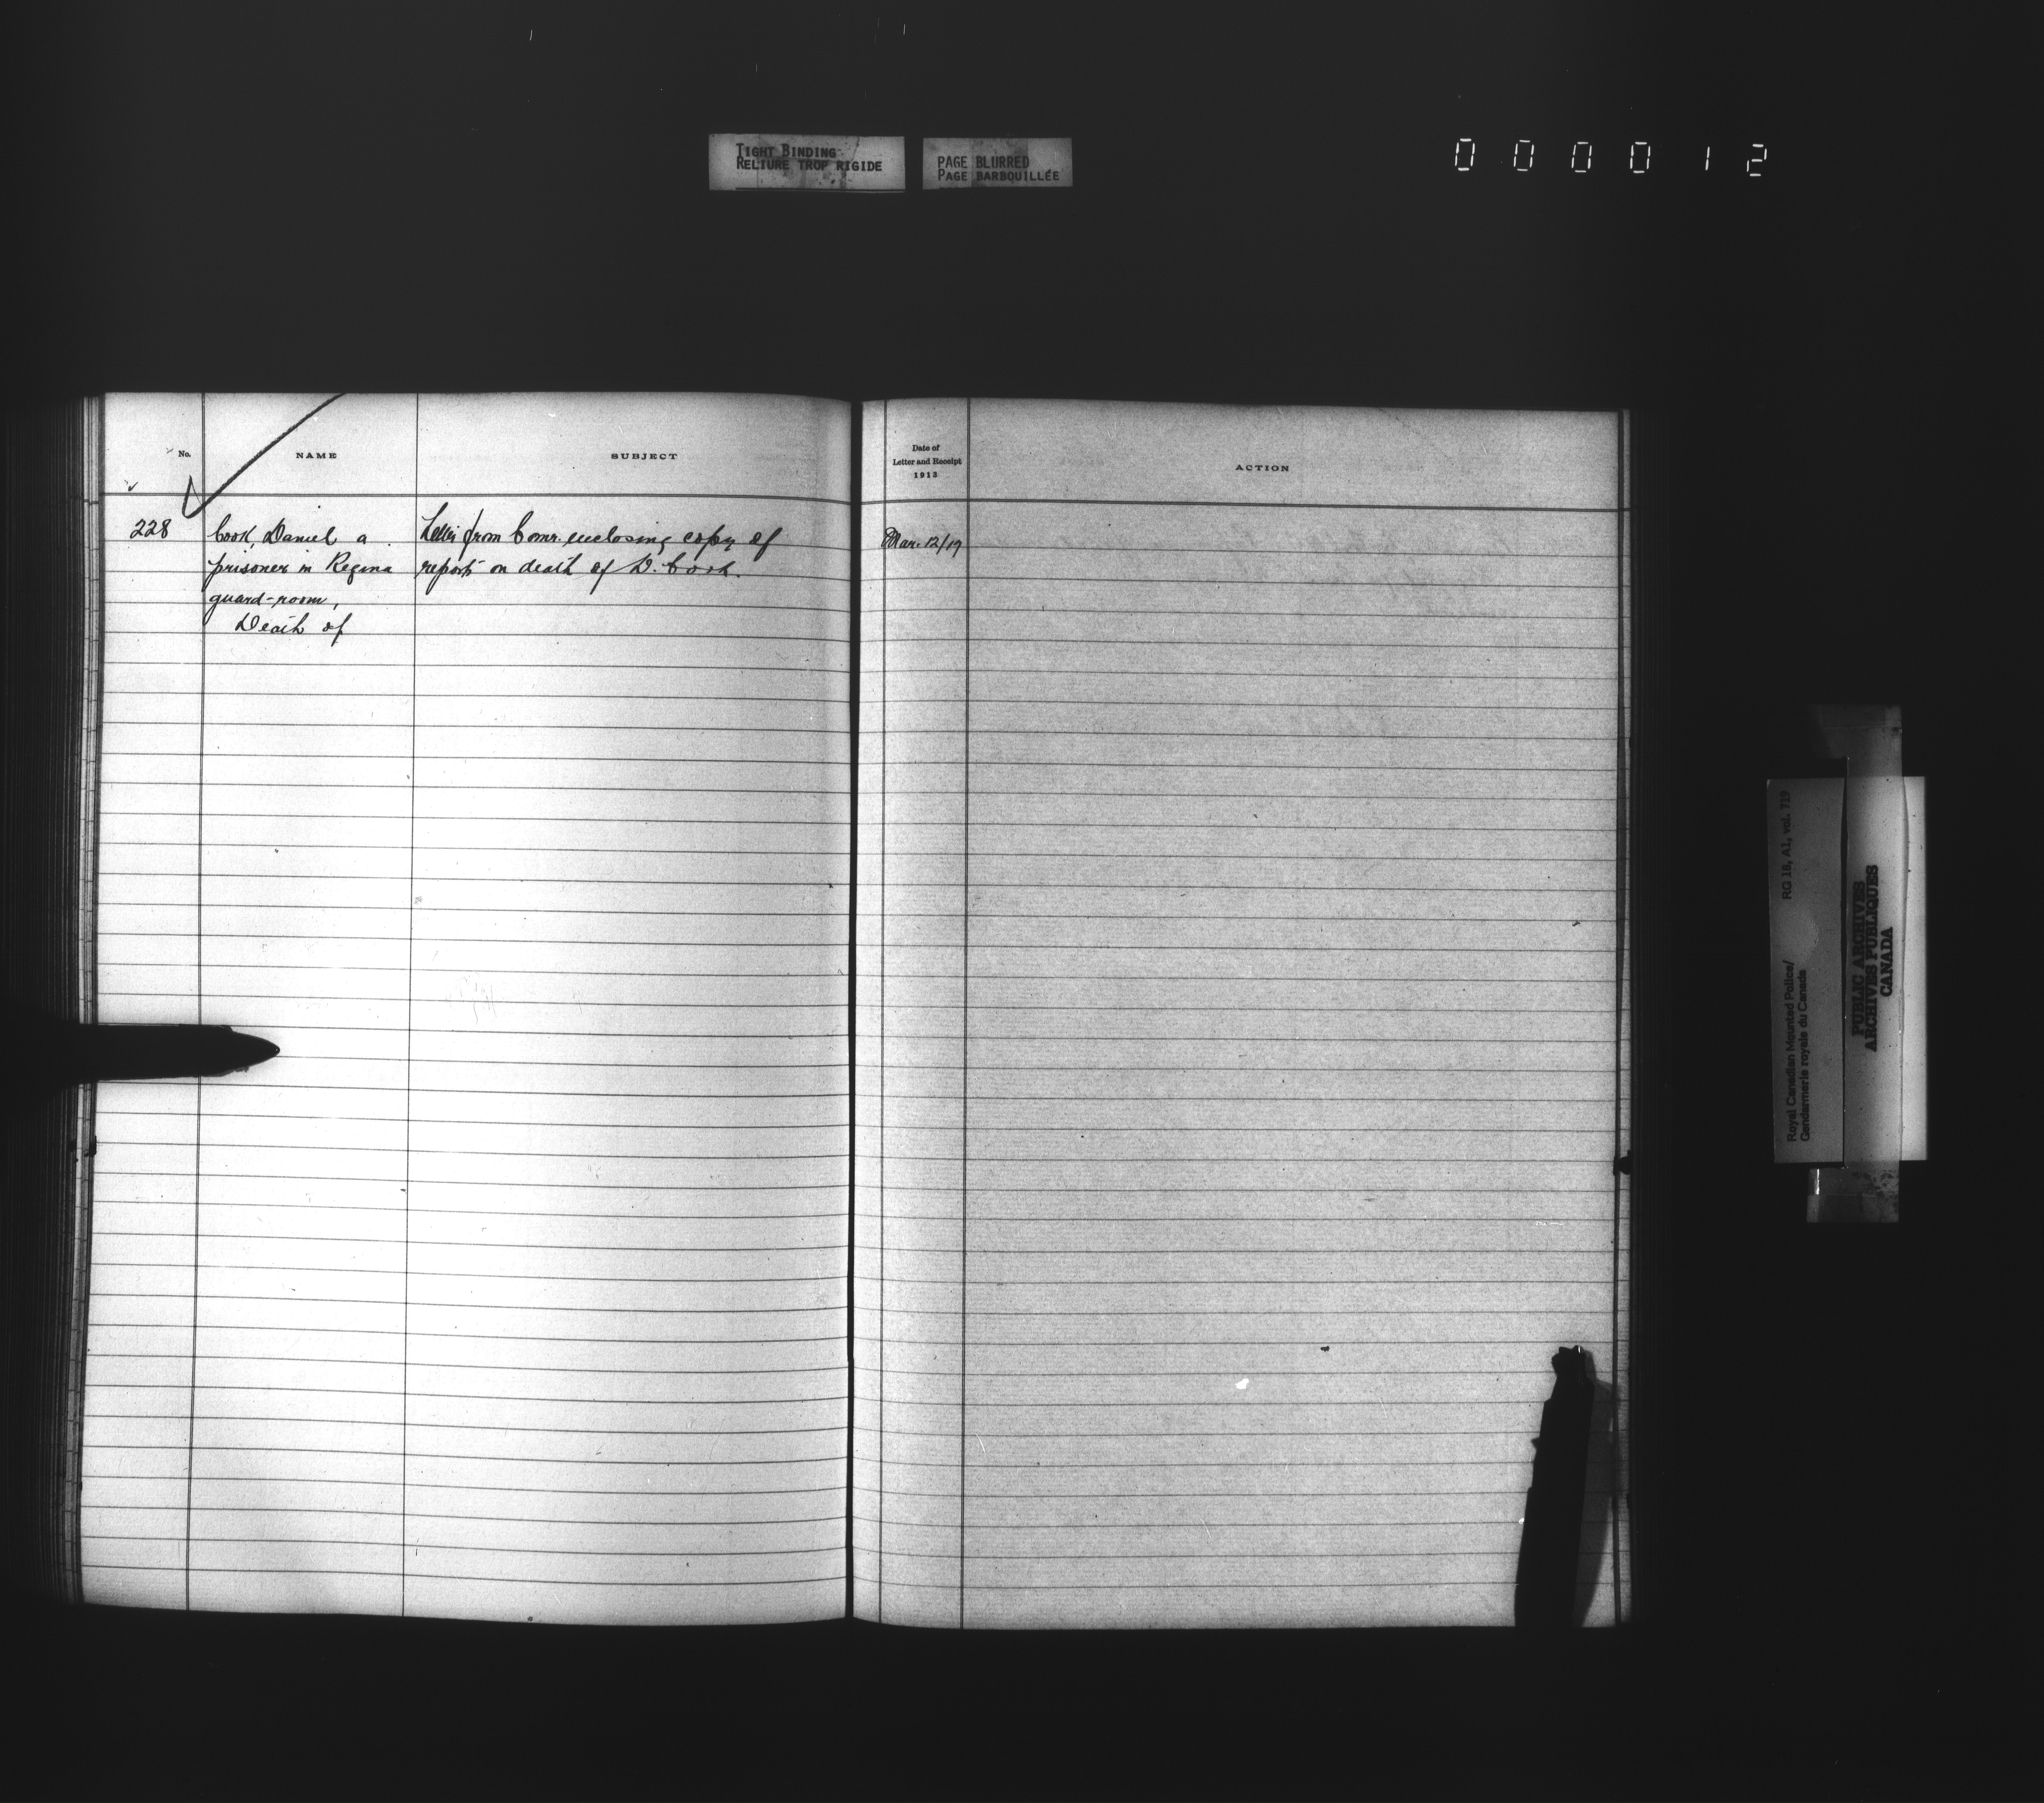 TIGHT BINDING
RELIURE TROP RIGIDE
PAGE BLURRED
PAGE BARBOUILLÉE
000012
No.
NAME
SUBJECT
Date of
Letter and Receipt
1913
ACTION
228
Cook, Daniel a
prisoner in Regina
guard-room,
Death of
Letter from Comr. enclosing copy of
report on death of D. Cook.
Mar. 12/17
Royal Canadian Mounted Police/
Gendarmerie royale du Canada
RG 18, A1, vol. 719
PUBLIC ARCHIVES
ARCHIVES PUBLIQUES
CANADA